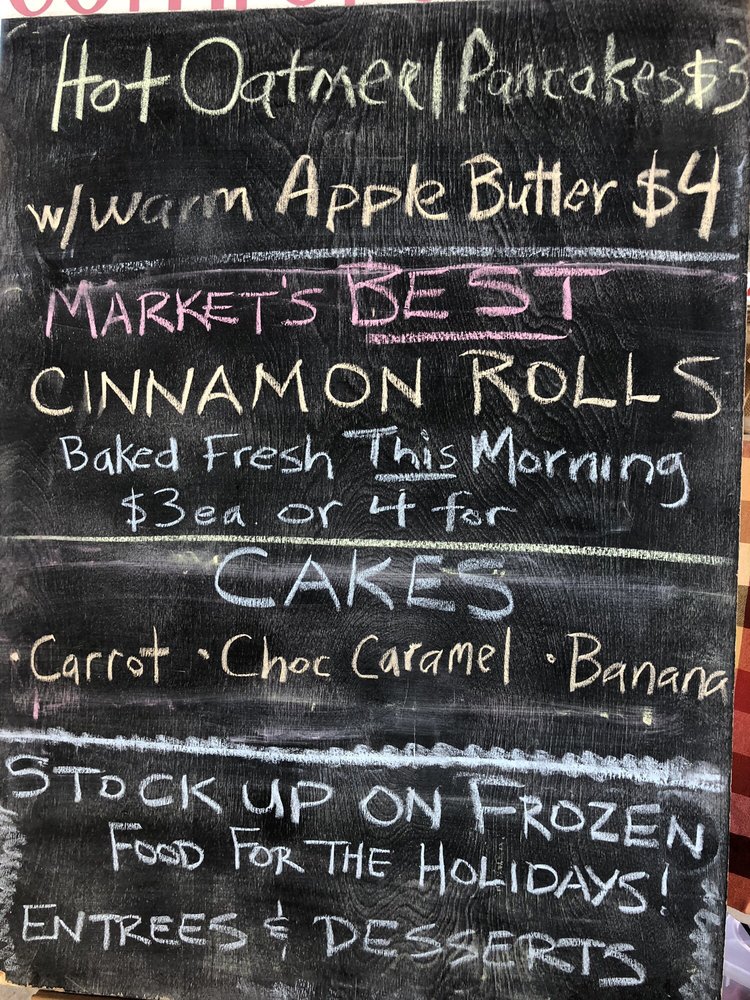 Hot Oatmeal Pancakes $3
w/warm Apple Butter $4
MARKET'S BEST
CINNAMON ROLLS
Baked Fresh This Morning
$3 ea. or 4 for
CAKES
· Carrot · Choc Caramel · Banana
STOCK UP ON FROZEN
FOOD FOR THE HOLIDAYS!
ENTREES & DESSERTS